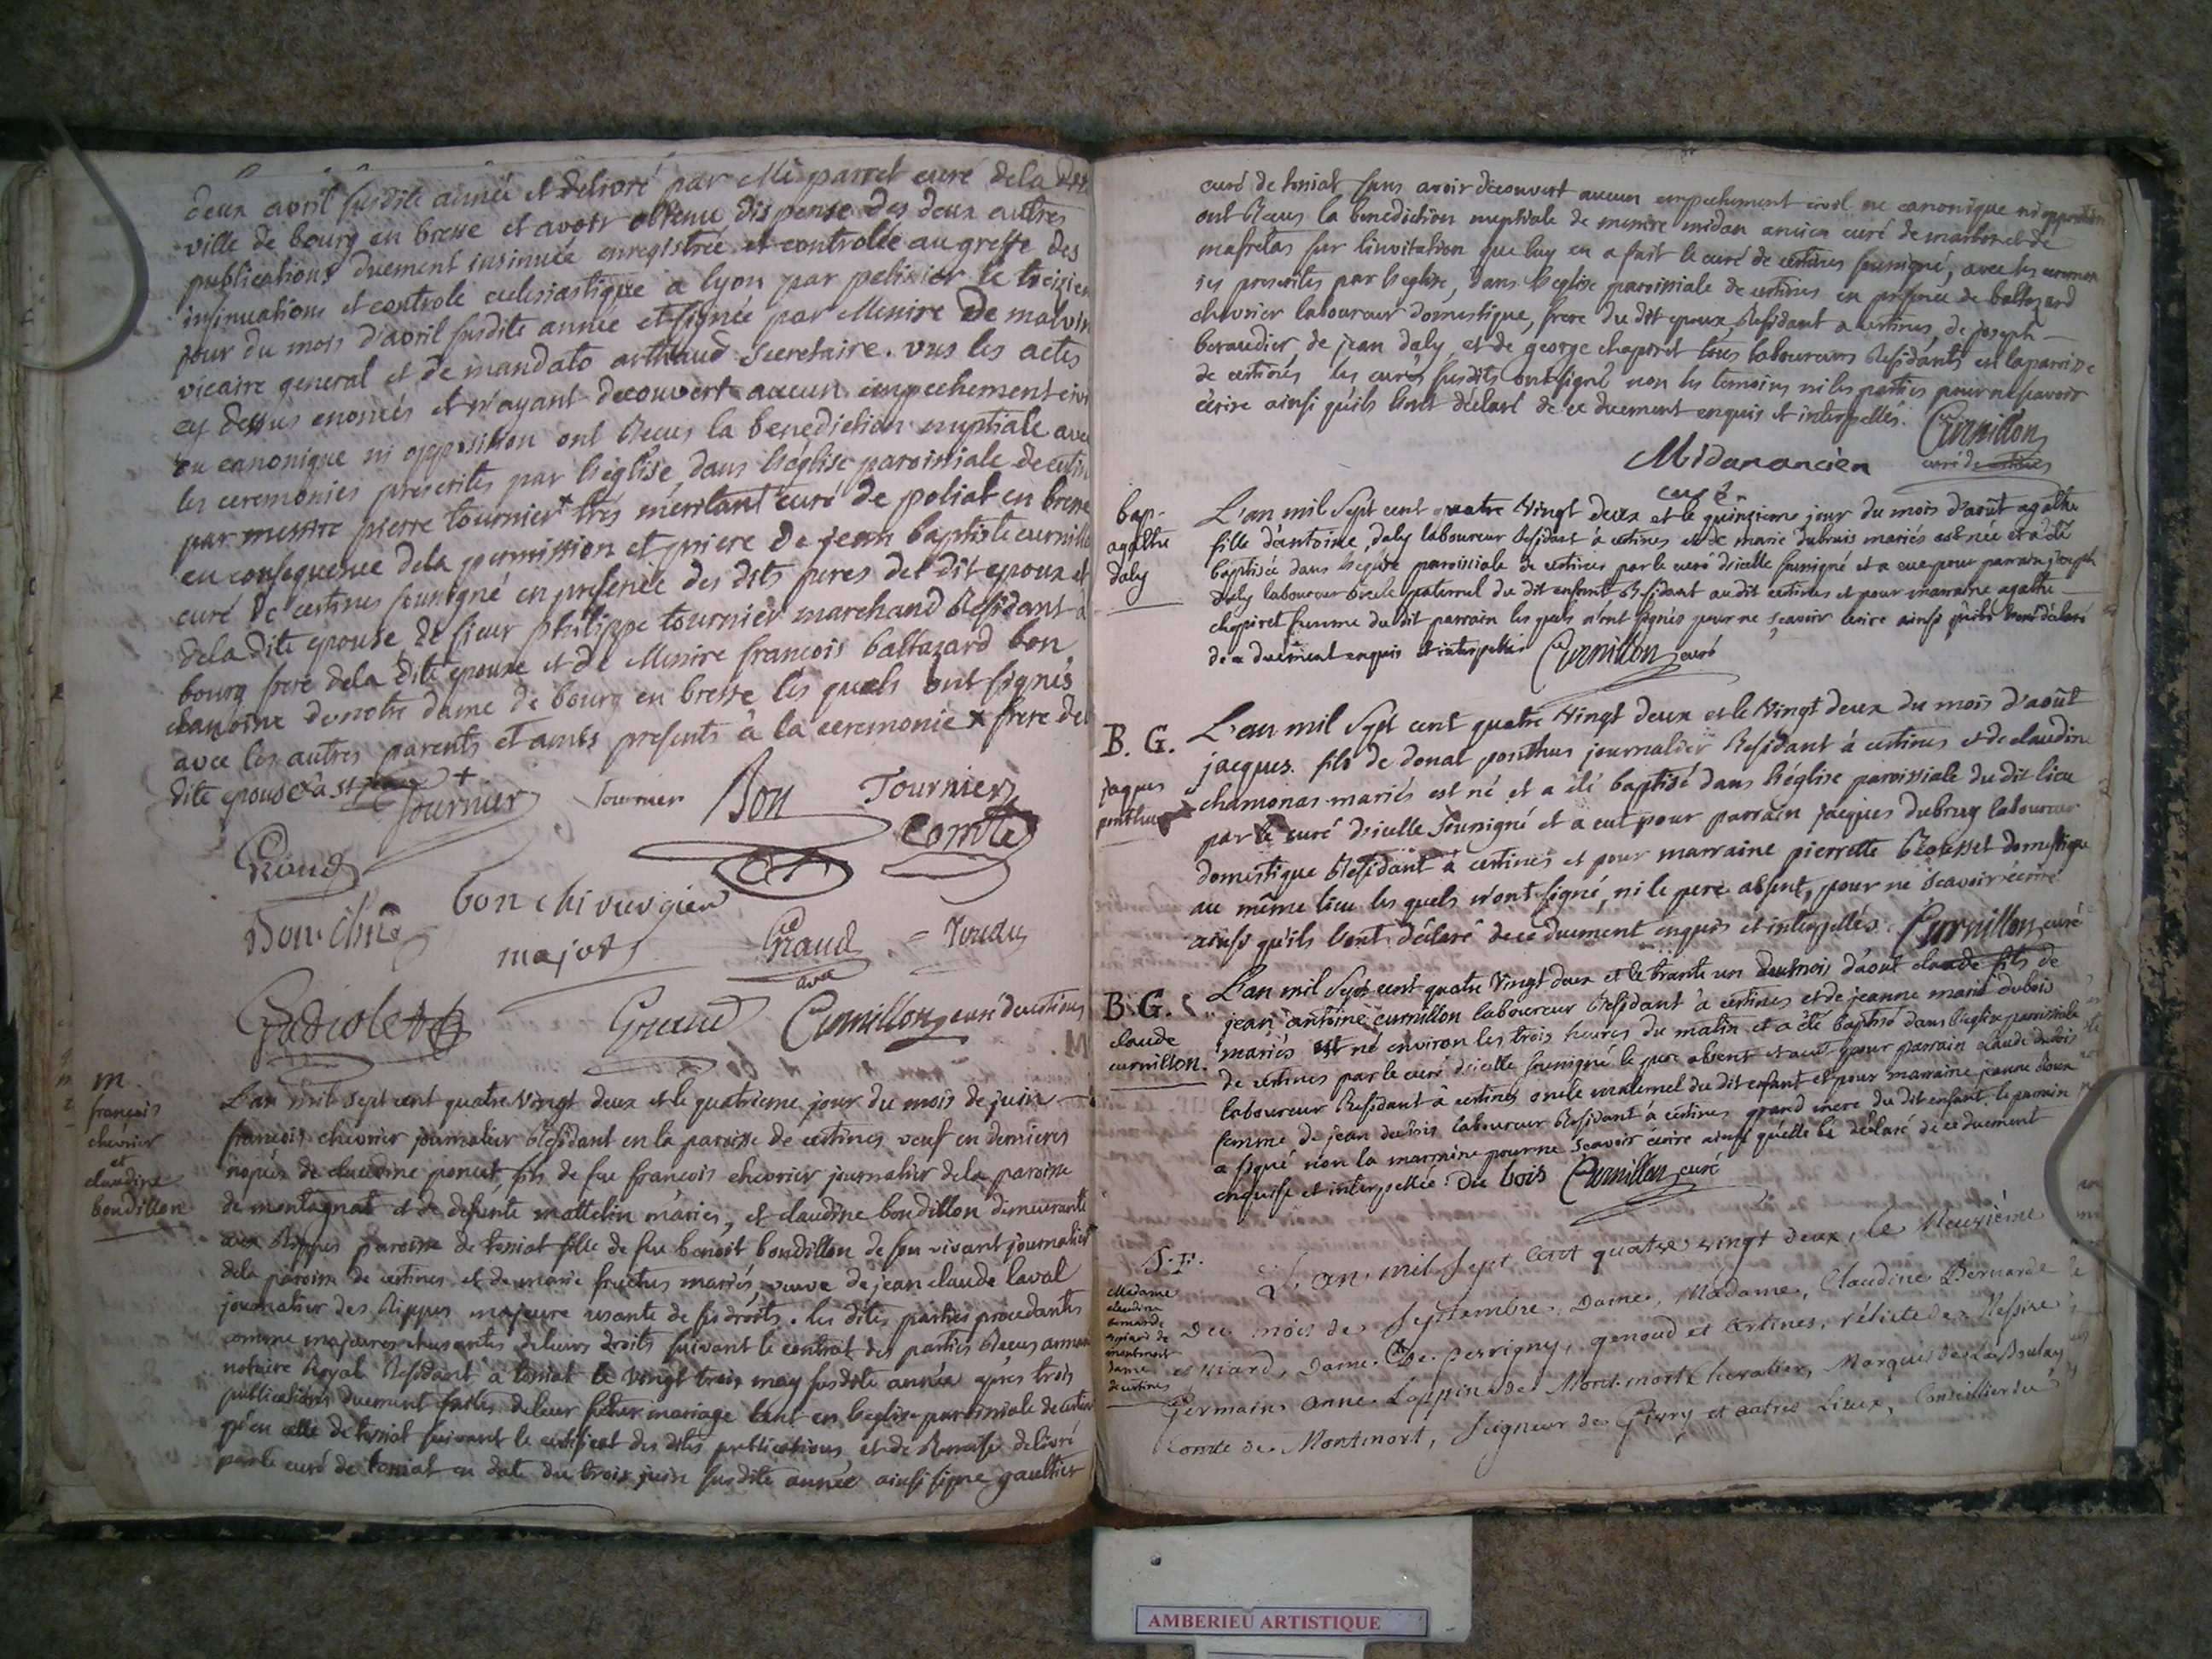 deux avril susdite année et delivré par Me parret curé dela dite
ville de bourg en bresse et avoir obtenu dispense des deux autres
publications duement insinuée enregistrée et controlée au greffe des
insinuations et controle eclesiastique a lyon par pelissier le treizien
jour du mois d'avril susdite année et signée par Messire De malvin
vicaire general et de mandato arthaud Secretaire. vus les actes
cy dessus enoncés et n'ayant decouvert aucun empechement civi
ou canonique ni opposition ont Recus la benediction nuptiale avec
les ceremonies prescrites par l'eglise, dans l'église paroissiale de certin
par messire pierre tournier + trés meritant curé de poliat en bresse
en consequence dela permission et priere De jean baptiste curnillo
curé de certines soussigné en presence des dits peres del dit epoux et
dela dite epouse, de sieur philippe tournier marchand Residant à
bourg frere dela dite epouse et de Messire francois baltazard bon
chanoine de notre dame de bourg en bresse les quels ont signés
avec les autres parents et amis presents à la ceremonie + frere del
dite epouse
Tournier Tournier Bon Tournier
Comte
Giraud
Bon chne bon chirurgien
major Giraud
Giraud Curnillon curé de certines
m.
françois
chevrier
et
claudine
bondillon
L'an mil sept cent quatre vingt deux et le quatrieme jour du mois de juin
francois chevrier journalier Residant en la paroisse de certines veuf en dernieres
nopces de claudine poncet, fils de feu francois chevrier journalier dela paroisse
de montagnat et de defunte mattelin mariés, et claudine bondillon demeurante
aux Rippes paroisse de tossiat fille de feu benoit bondillon de son vivant journalier
dela paroisse de certines et de marie fructus mariés, veuve de jean claude laval
journalier des Rippes majeure usante de ses droits. les dites parties procedantes
comme majeures et usantes de leurs droits suivant le contrat des parties Recus
notaire Royal Residant à tossiat le vingt trois may susdite année après trois
publications duement faites de leur futur mariage tant en l'eglise paroissiale de certin
qu'en celle de tossiat suivant le certificat des dites publications et de Remise delivré
par le curé de tossiat en date du trois juin susdite année ainsi signe gaultier
curé de tossiat sans avoir decouvert aucun empechement civil ou canonique ni opposition
ont Recus la benediction nuptiale de messire midan ancien curé de marboz et de
mafrelas sur l'invitation que luy en a fait le curé de certines soussigné, avec les ceremon
ies prescrites par l'eglise, dans l'eglise paroissiale de certines en presence de baltazard
chevrier laboureur domestique, frere du dit epoux Residant a certines, de joseph
beraudier, de jean daly et de george chapiret tous laboureurs Residants en la paroisse
de certines les curés susdits ont signé non les temoins ni les parties pour ne scavoir
écrire ainsi qu'ils l'ont déclaré de ce duement enquis et interpellés. Curnillon
Midan ancien curé de certines
curé
bap.
agathe
daly
L'an mil sept cent quatre vingt deux et le quinzieme jour du mois d'août agathe
fille d'antoine daly laboureur Residant à certines et de marie dubuis mariés est née et a été
baptisée dans l'eglise paroissiale de certines par le curé d'icelle soussigné et a eue pour parrain joseph
daly laboureur oncle paternel du dit enfant Residant audit certines et pour marraine agathe
chapiret femme du dit parrain les quels n'ont signés pour ne scavoir écrire ainsi qu'ils l'ont déclaré
de ce duement enquis et interpellés Curnillon curé
B. G.
jaques
ponthus
L'an mil sept cent quatre vingt deux et le vingt deux du mois d'août
jacques fils de donat ponthus journalier Residant à certines et de claudine
chamonas mariés est né et a été baptisé dans l'église paroissiale du dit lieu
par le curé d'icelle soussigné et a eut pour parrain jacques dubruy laboureur
domestique Residant à certines et pour marraine pierrette brousset domestique
au même lieu les quels n'ont signé, ni le pere absent, pour ne scavoir écrire
ainsy qu'ils l'ont déclaré de ce duement enquis et interpellés. Curnillon curé
B. G.
claude
curnillon.
L'an mil sept cent quatre vingt deux et le trante un du mois d'août claude fils de
jean antoine curnillon laboureur Residant à certines et de jeanne marie dubois
mariés est né environ les trois heures du matin et a été baptisé dans l'eglise paroissiale
de certines par le curé d'icelle soussigné le pere absent et a eut pour parrain claude dubois
laboureur Residant à certines oncle maternel du dit enfant et pour marraine jeanne
femme de jean dubois laboureur Residant à certines grand mere du dit enfant. le parrain
a signé non la marraine pour ne scavoir écrire ainsi qu'elle l'a déclaré de ce duement
enquise et interpellée. Du bois Curnillon curé
Madame
claudine
bernarde
espiard de
montmort
dame
de certines
L'an mil Sept Cent quatre vingt deux, le Neuvième
Du mois de Septembre, Dame, Madame, Claudine Bernarde
espiard, Dame De perrigny, genoud et Certines, rélicte de Messire
Germain Anne Loppin de Montmort Chevalier, Marquis de La Boulay
Comte de Montmort, Seigneur de Givry et autres Lieux, Conseillier du
AMBERIEU ARTISTIQUE